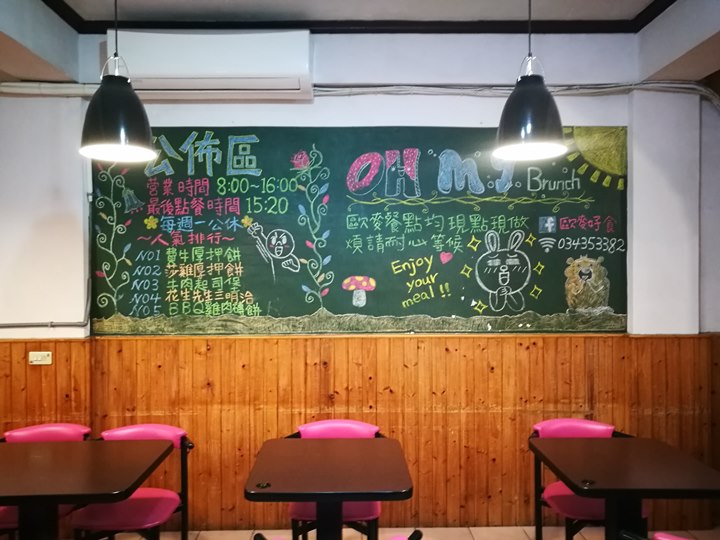 公佈區
營業時間 8:00~16:00
最後點餐時間 15:20
每週一公休
~人氣排行~
NO1 賽牛厚押餅
NO2 莎雞厚押餅
NO3 牛肉起司堡
NO4 花生先生三明治
NO5 BBQ雞肉燒餅
OH MY Brunch
歐麥餐點均現點現做
煩請耐心等候
歐麥好食
034353382
Enjoy
your
meal!!